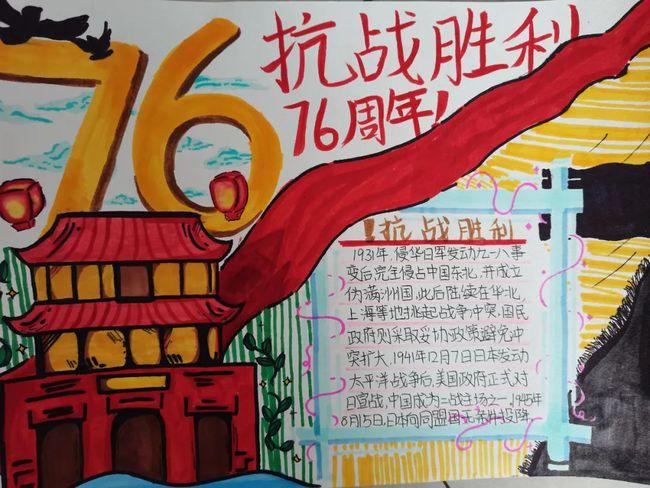 76
抗战胜利
76周年!
抗战胜利
1931年,侵华日军发动九一八事
变后,完全侵占中国东北,并成立
伪满洲国,此后陆续在华北,
上海等地挑起战争冲突,国民
政府则采取妥协政策避免冲
突扩大,1941年12月7日日本发动
太平洋战争后,美国政府正式对
日宣战,中国成为二战主场之一,1945年
8月15日,日本向同盟国无条件投降